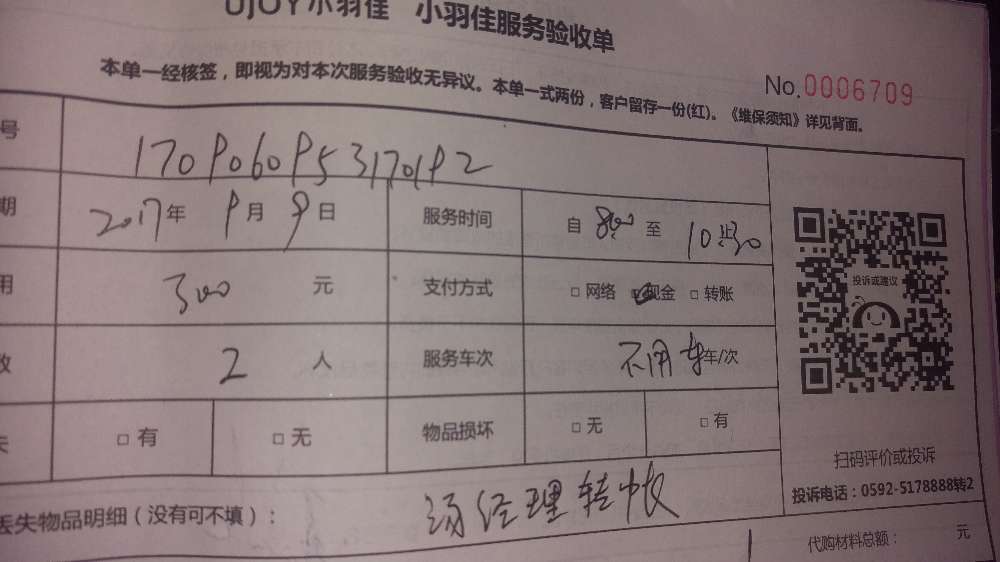 UJOY小羽佳 小羽佳服务验收单
本单一经核签，即视为对本次服务验收无异议。本单一式两份，客户留存一份(红)。《维保须知》详见背面。
No.0006709
号 170P060P531701P2
期 2017年 9月 9日 服务时间 自 8:00 至 10:30
用 300 元 支付方式 □网络 ☑现金 □转账
数 2 人 服务车次 不用车 车/次
失 □有 □无 物品损坏 □无 □有
投诉或建议
扫码评价或投诉
投诉电话：0592-5178888转2
丢失物品明细（没有可不填）： 汤经理转帐
代购材料总额： 元